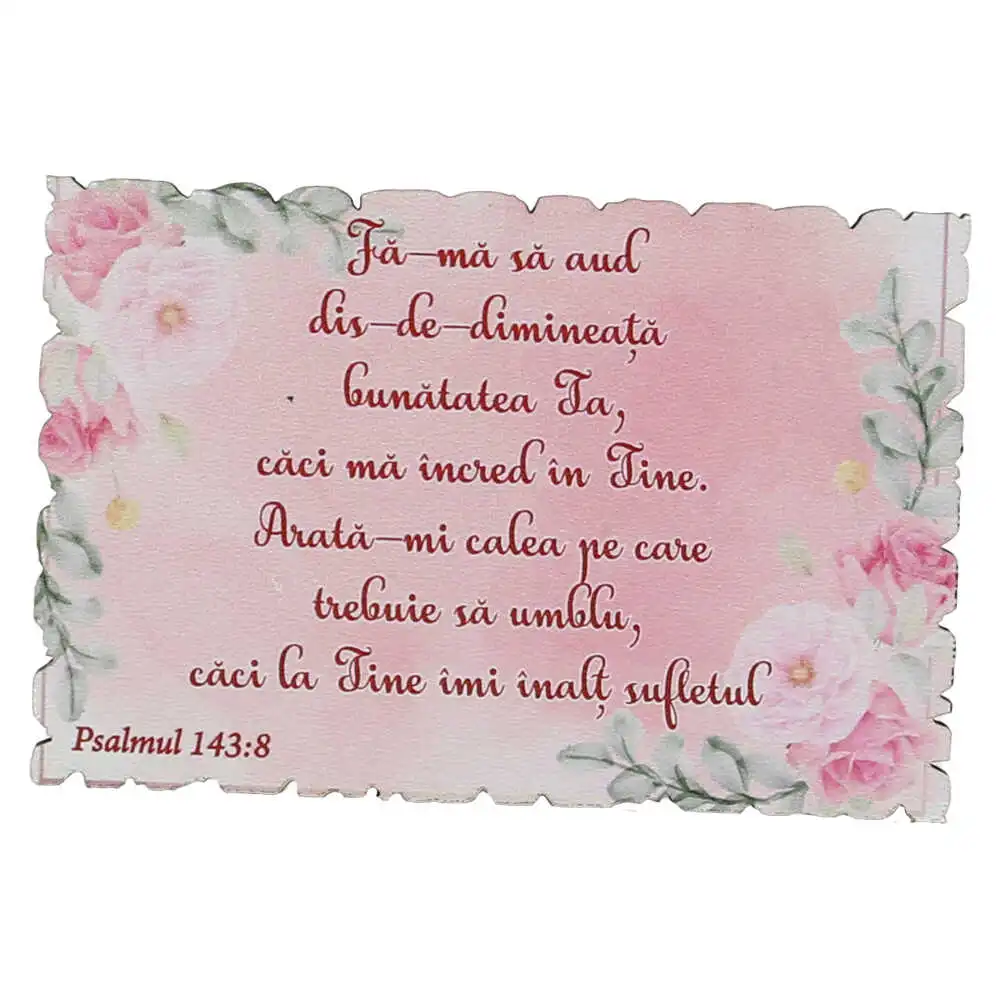 Fă-mă să aud
dis-de-dimineață
bunătatea Ta,
căci mă încred în Tine.
Arată-mi calea pe care
trebuie să umblu,
căci la Tine îmi înalț sufletul
Psalmul 143:8